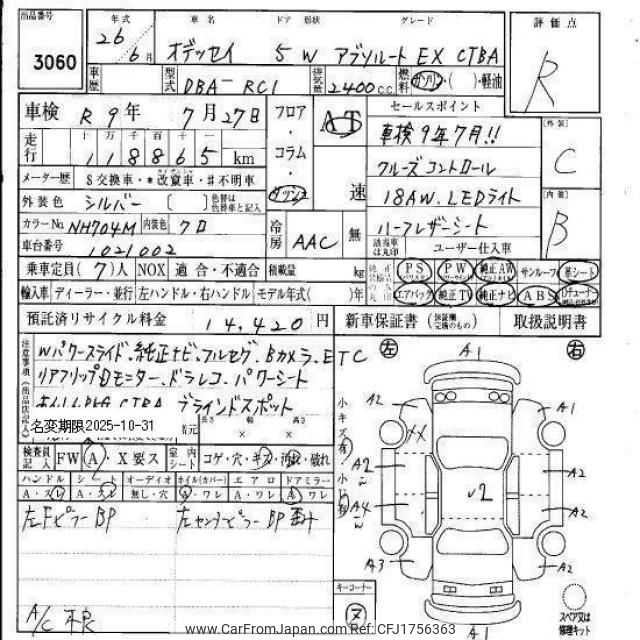 出品番号 年式 車名 ドア 形状 グレード 評価点
3060 26年6月 オデッセイ 5 W アブソルート EX CTBA R
車歴 型式 DBA-RC1 排気量 2400 C.C. 燃料 ガソリン・( )・軽油
車検 R 9年 7月27日 フロア・コラム・ AT セールスポイント [外装]
走行 十 万 千 百 十 一 車検9年7月!! C
118865 km クルーズコントロール
メーター歴 $交換車・*改竄車・#不明車 速 18AW. LEDライト [内装]
外装色 シルバー [ ] 色替は色替車と記入 ハーフレザーシート B
カラーNo. NH704M 内装色 クロ 冷房 AAC 無 該当車は丸印 ユーザー仕入車
車台番号 1021002
乗車定員 (7)人 NOX 適合・不適合 積載量 kg PS PW 純正AW サンルーフ 革シート
輸入車 ディーラー・並行 左ハンドル・右ハンドル モデル年式( )年 エアバッグ 純正TV 純正ナビ ABS
預託済リサイクル料金 14,420 円 新車保証書 (保証欄完備のもの) 取扱説明書
注意事項 (出品店記入)
Wパワースライド、純正ナビ、フルセグ、Bカメラ、ETC
リアフリップDモニター、ドラレコ、パワーシート
ブラインドスポット
名変期限2025-10-31 長さ × 幅 × 高さ
検査員記入 FW A・X要ス 室内シート コゲ・穴・キズ・汚れ・破れ
ハンドル シート オーディオ ホイル(カバー) エアロ ドアミラー
A・スレ A・スレ 無し・穴 A・ワレ A・ワレ A・ワレ
左Fピラー BP 左センターピラー BP 歪み
A/C 不良
左 A1 右
A2 A1
小キズ(有) XX
A2 w A2
小ヘコ(有) A4 w ✓2 A2
A3 A2
キーコーナー ヌ A1 スペア又は修理キット
www.CarFromJapan.com Ref:CFJ1756363